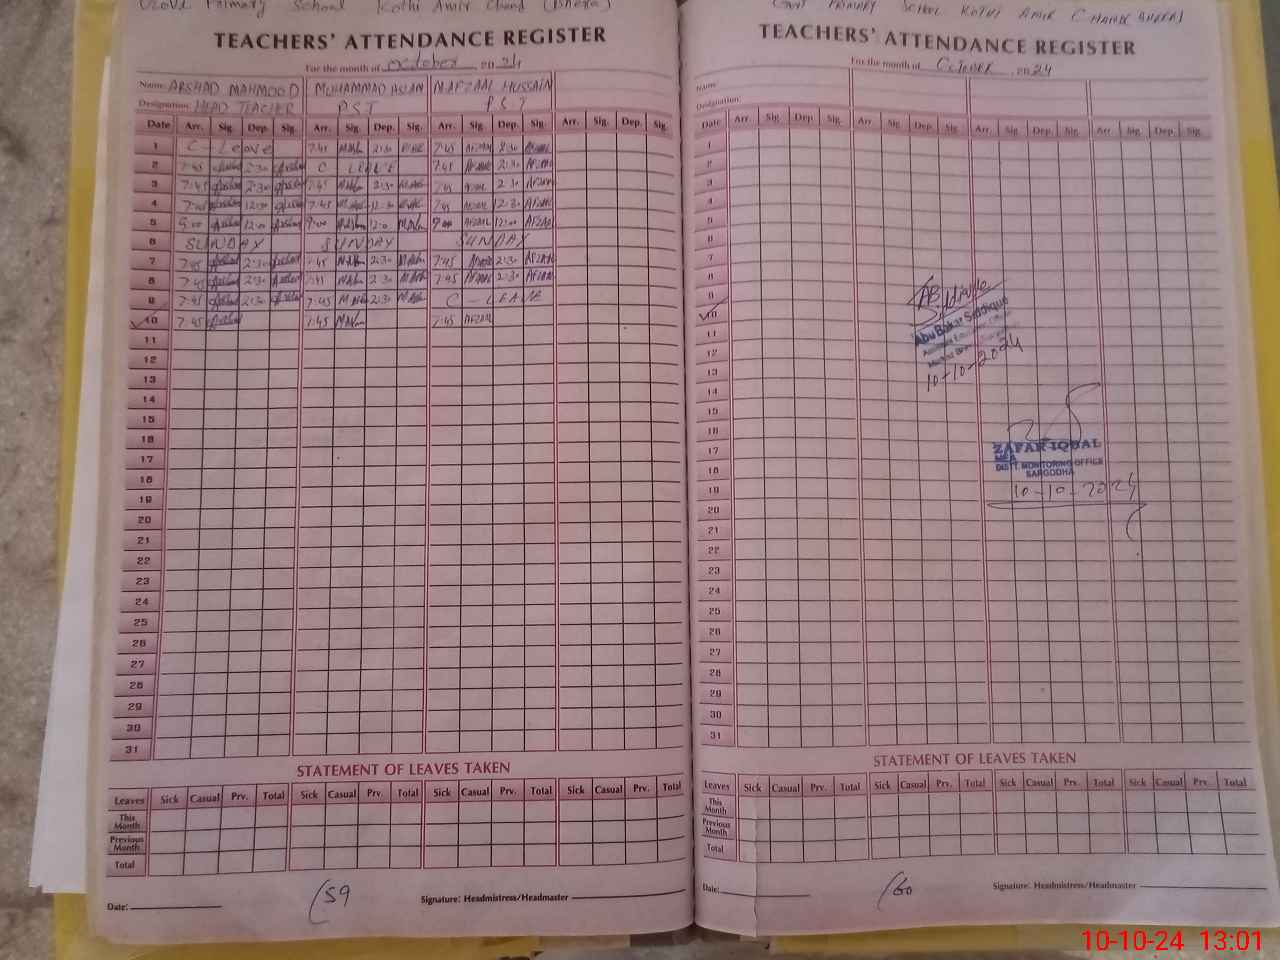 Govt Primary School Kothi Amir Chand (Bhera)
TEACHERS' ATTENDANCE REGISTER
For the month of October 2024
Name: ARSHAD MAHMOOD MUHAMMAD ASLAM M. AFZAAL HUSSAIN
Designation: HEAD TEACHER P.S.T P.S.T
Date Arr. Sig. Dep. Sig. Arr. Sig. Dep. Sig. Arr. Sig. Dep. Sig. Arr. Sig. Dep. Sig.
1 C-Leave 7:45 2:30 7:45 AFZAAL 2:30
2 7:45 2:30 C LEAVE 7:45 AFZAAL 2:30 AFZAAL
3 7:45 2:30 7:45 2:30 7:45 AFZAAL 2:30 AFZAAL
4 7:45 12:30 7:45 12:30 7:45 AFZAAL 12:30 AFZAAL
5 9:00 12:00 9:00 12:00 9:00 AFZAAL 12:00 AFZAAL
6 SUNDAY SUNDAY SUNDAY
7 7:45 2:30 7:45 2:30 7:45 AFZAAL 2:30 AFZAAL
8 7:45 2:30 7:45 2:30 7:45 AFZAAL 2:30 AFZAAL
9 7:45 2:30 7:45 2:30 C-LEAVE
10 7:45 7:45 7:45 AFZAAL
11
12
13
14
15
16
17
18
19
20
21
22
23
24
25
26
27
28
29
30
31
STATEMENT OF LEAVES TAKEN
Leaves Sick Casual Prv. Total Sick Casual Prv. Total Sick Casual Prv. Total Sick Casual Prv. Total
This Month
Previous Month
Total
Date: 59 Signature: Headmistress/Headmaster
GOVT PRIMARY SCHOOL KOTHI AMIR CHAND (BHERA)
TEACHERS' ATTENDANCE REGISTER
For the month of October 2024
Name:
Designation:
Date Arr. Sig. Dep. Sig. Arr. Sig. Dep. Sig. Arr. Sig. Dep. Sig. Arr. Sig. Dep. Sig.
1
2
3
4
5
6
7
8
9
10
11
12
13
14
15
16
17
18
19
20
21
22
23
24
25
26
27
28
29
30
31
Abu Bakar Siddique
Assistant Education Officer
10-10-2024
ZAFAR IQBAL
MEA
DISTT. MONITORING OFFICE
SARGODHA
10-10-2024
STATEMENT OF LEAVES TAKEN
Leaves Sick Casual Prv. Total Sick Casual Prv. Total Sick Casual Prv. Total Sick Casual Prv. Total
This Month
Previous Month
Total
Date: 60 Signature: Headmistress/Headmaster
10-10-24 13:01